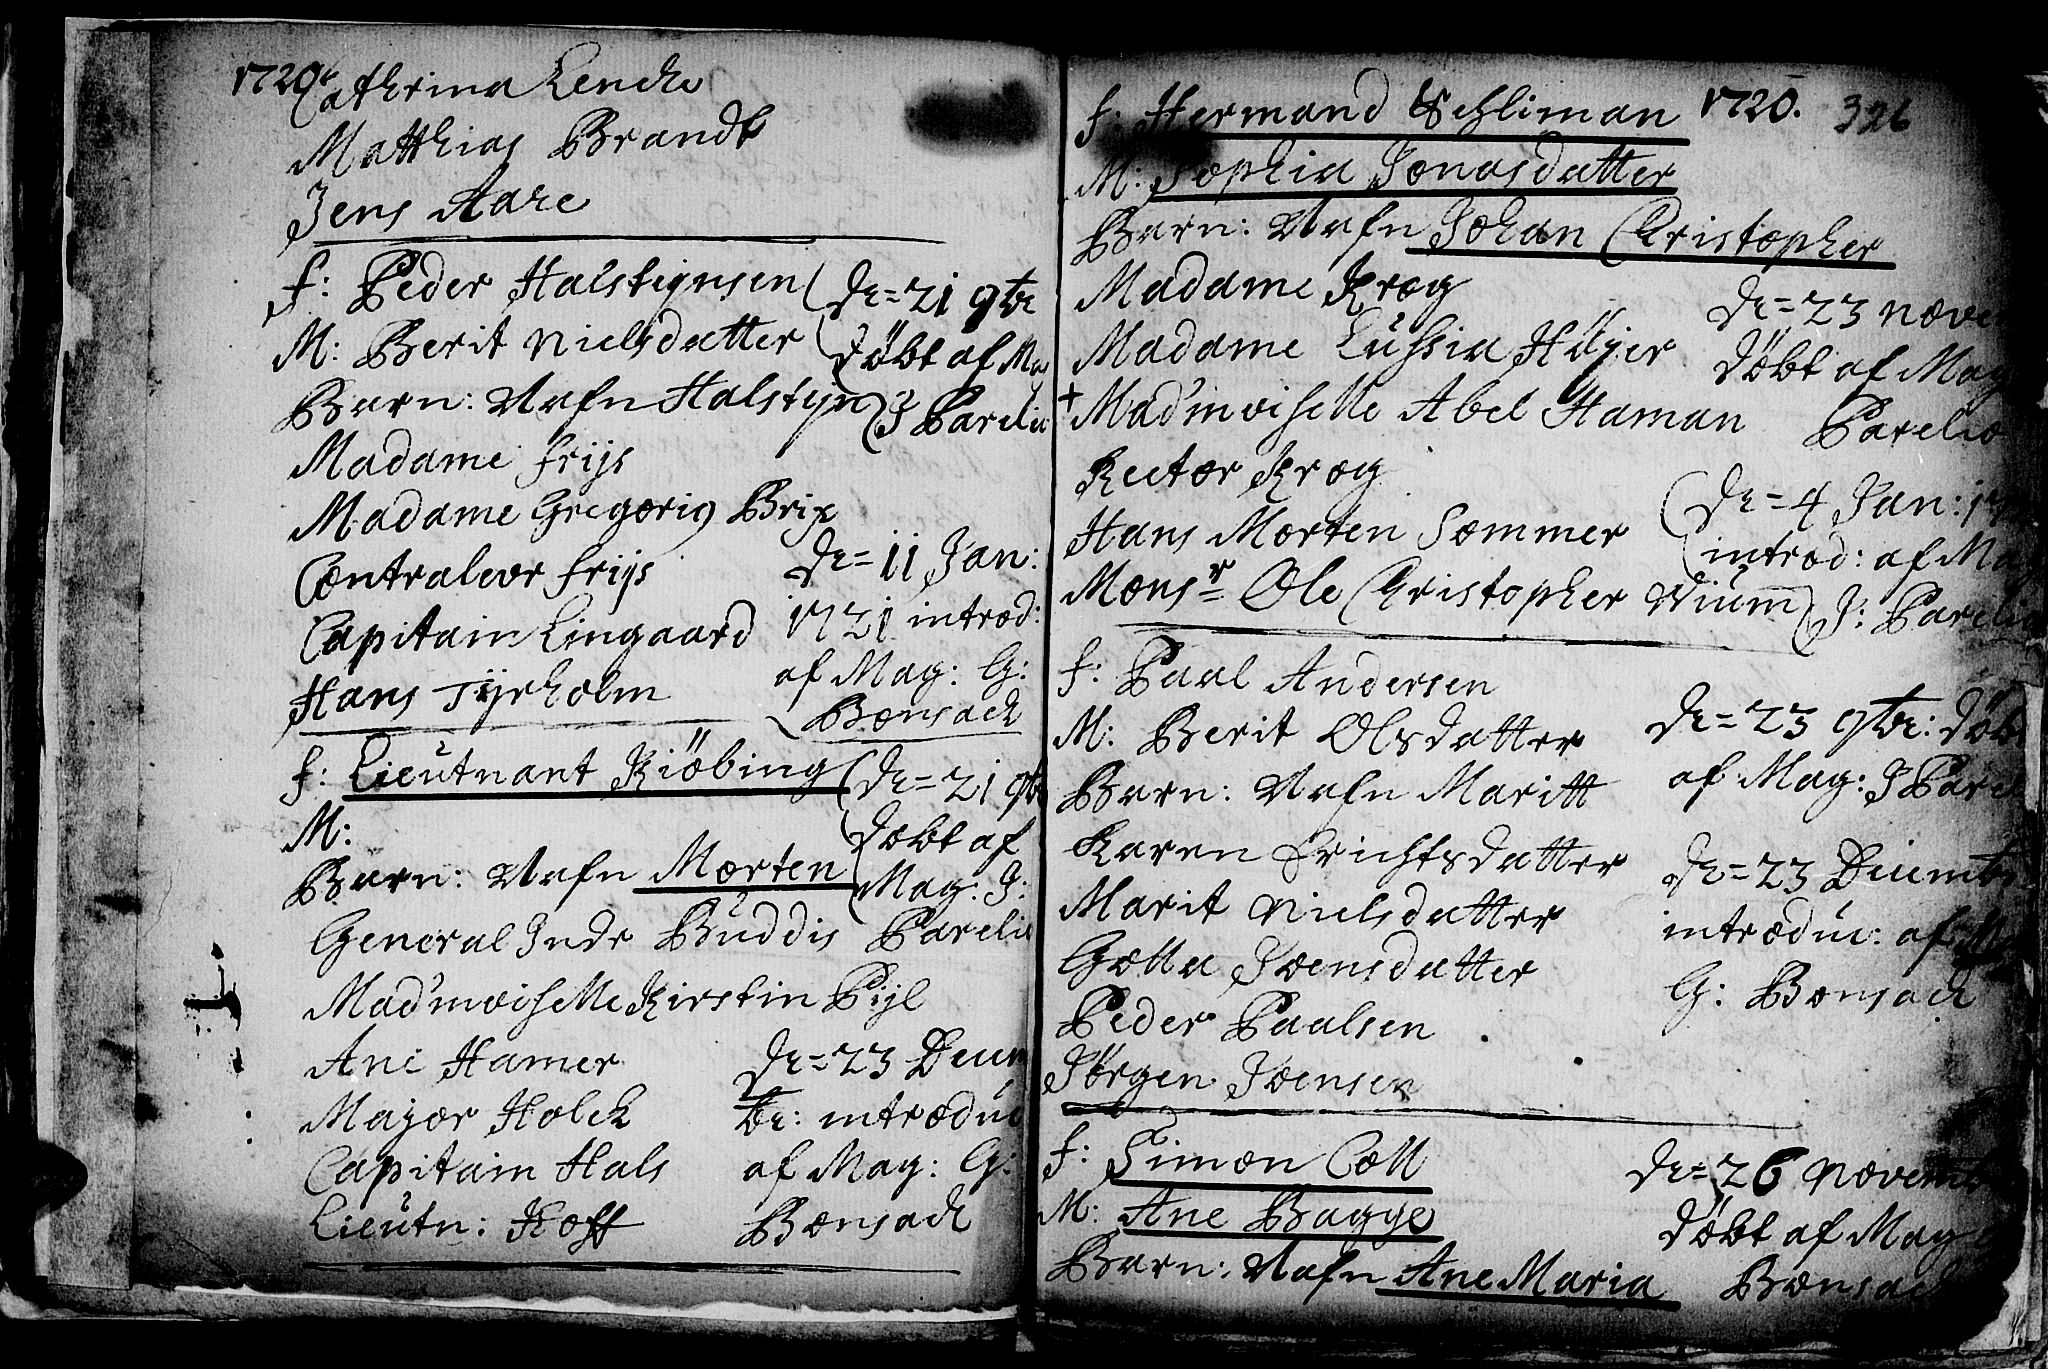 1720 Cathrina Lencke
Matthias Brandt
Jens Aare
f: Peder Halsteynsen
M: Berit Nielsdatter
Barn: Nafn Halsteyn
Madame friis
Madame Gregorig Brix
Contraleur friis
Capitain Lingaard
Hans Tÿrholm
dn= 21 9br
døbt af Ma
J Parelio
dn= 11 Jan:
1721 introd:
af Mag: G:
Bonsach
f: Lieutnant Kiöbing
M:
Barn: Nafn Morten
General Inde Buddis
Mad'moiselle Kirstin Pijl
Ane Hamer
Major Holck
Capitain Hals
Lieutn: Hoff
dn= 21 9br
døbt af
Mag: J:
Parelio
dn= 23 Decem
br: introdu
af Mag: G:
Bonsach
1720. 326
f: Hermand Schliman
M: Sophia Jonasdatter
Barn: Nafn Johan Christopher
Madame Krog
Madame Lussia Höyer
+ Mad'moiselle Abel Haman
Rector Krog
Hans Morten Sommer
Monsr Ole Christopher Wium
dn= 23 Nove
døbt af Mag
Parelio
dn= 4 Jan:
introd: af Ma
J: Parelio
f: Paul Andersen
M: Berit Olsdatter
Barn: Nafn Maritt
Karen Erichsdatter
Marit Nielsdatter
Golla Joensdatter
Peder Paalsen
Jørgen Joensen
dn= 23 9br: døb
af Mag: J Parel
dn= 23 Decemb
introduc: af Ma
G: Bonsach
f: Simon Coll
M: Ane Bagge
Barn: Nafn Ane Maria
dn= 26 Novemb
døbt af Mag
Bonsach